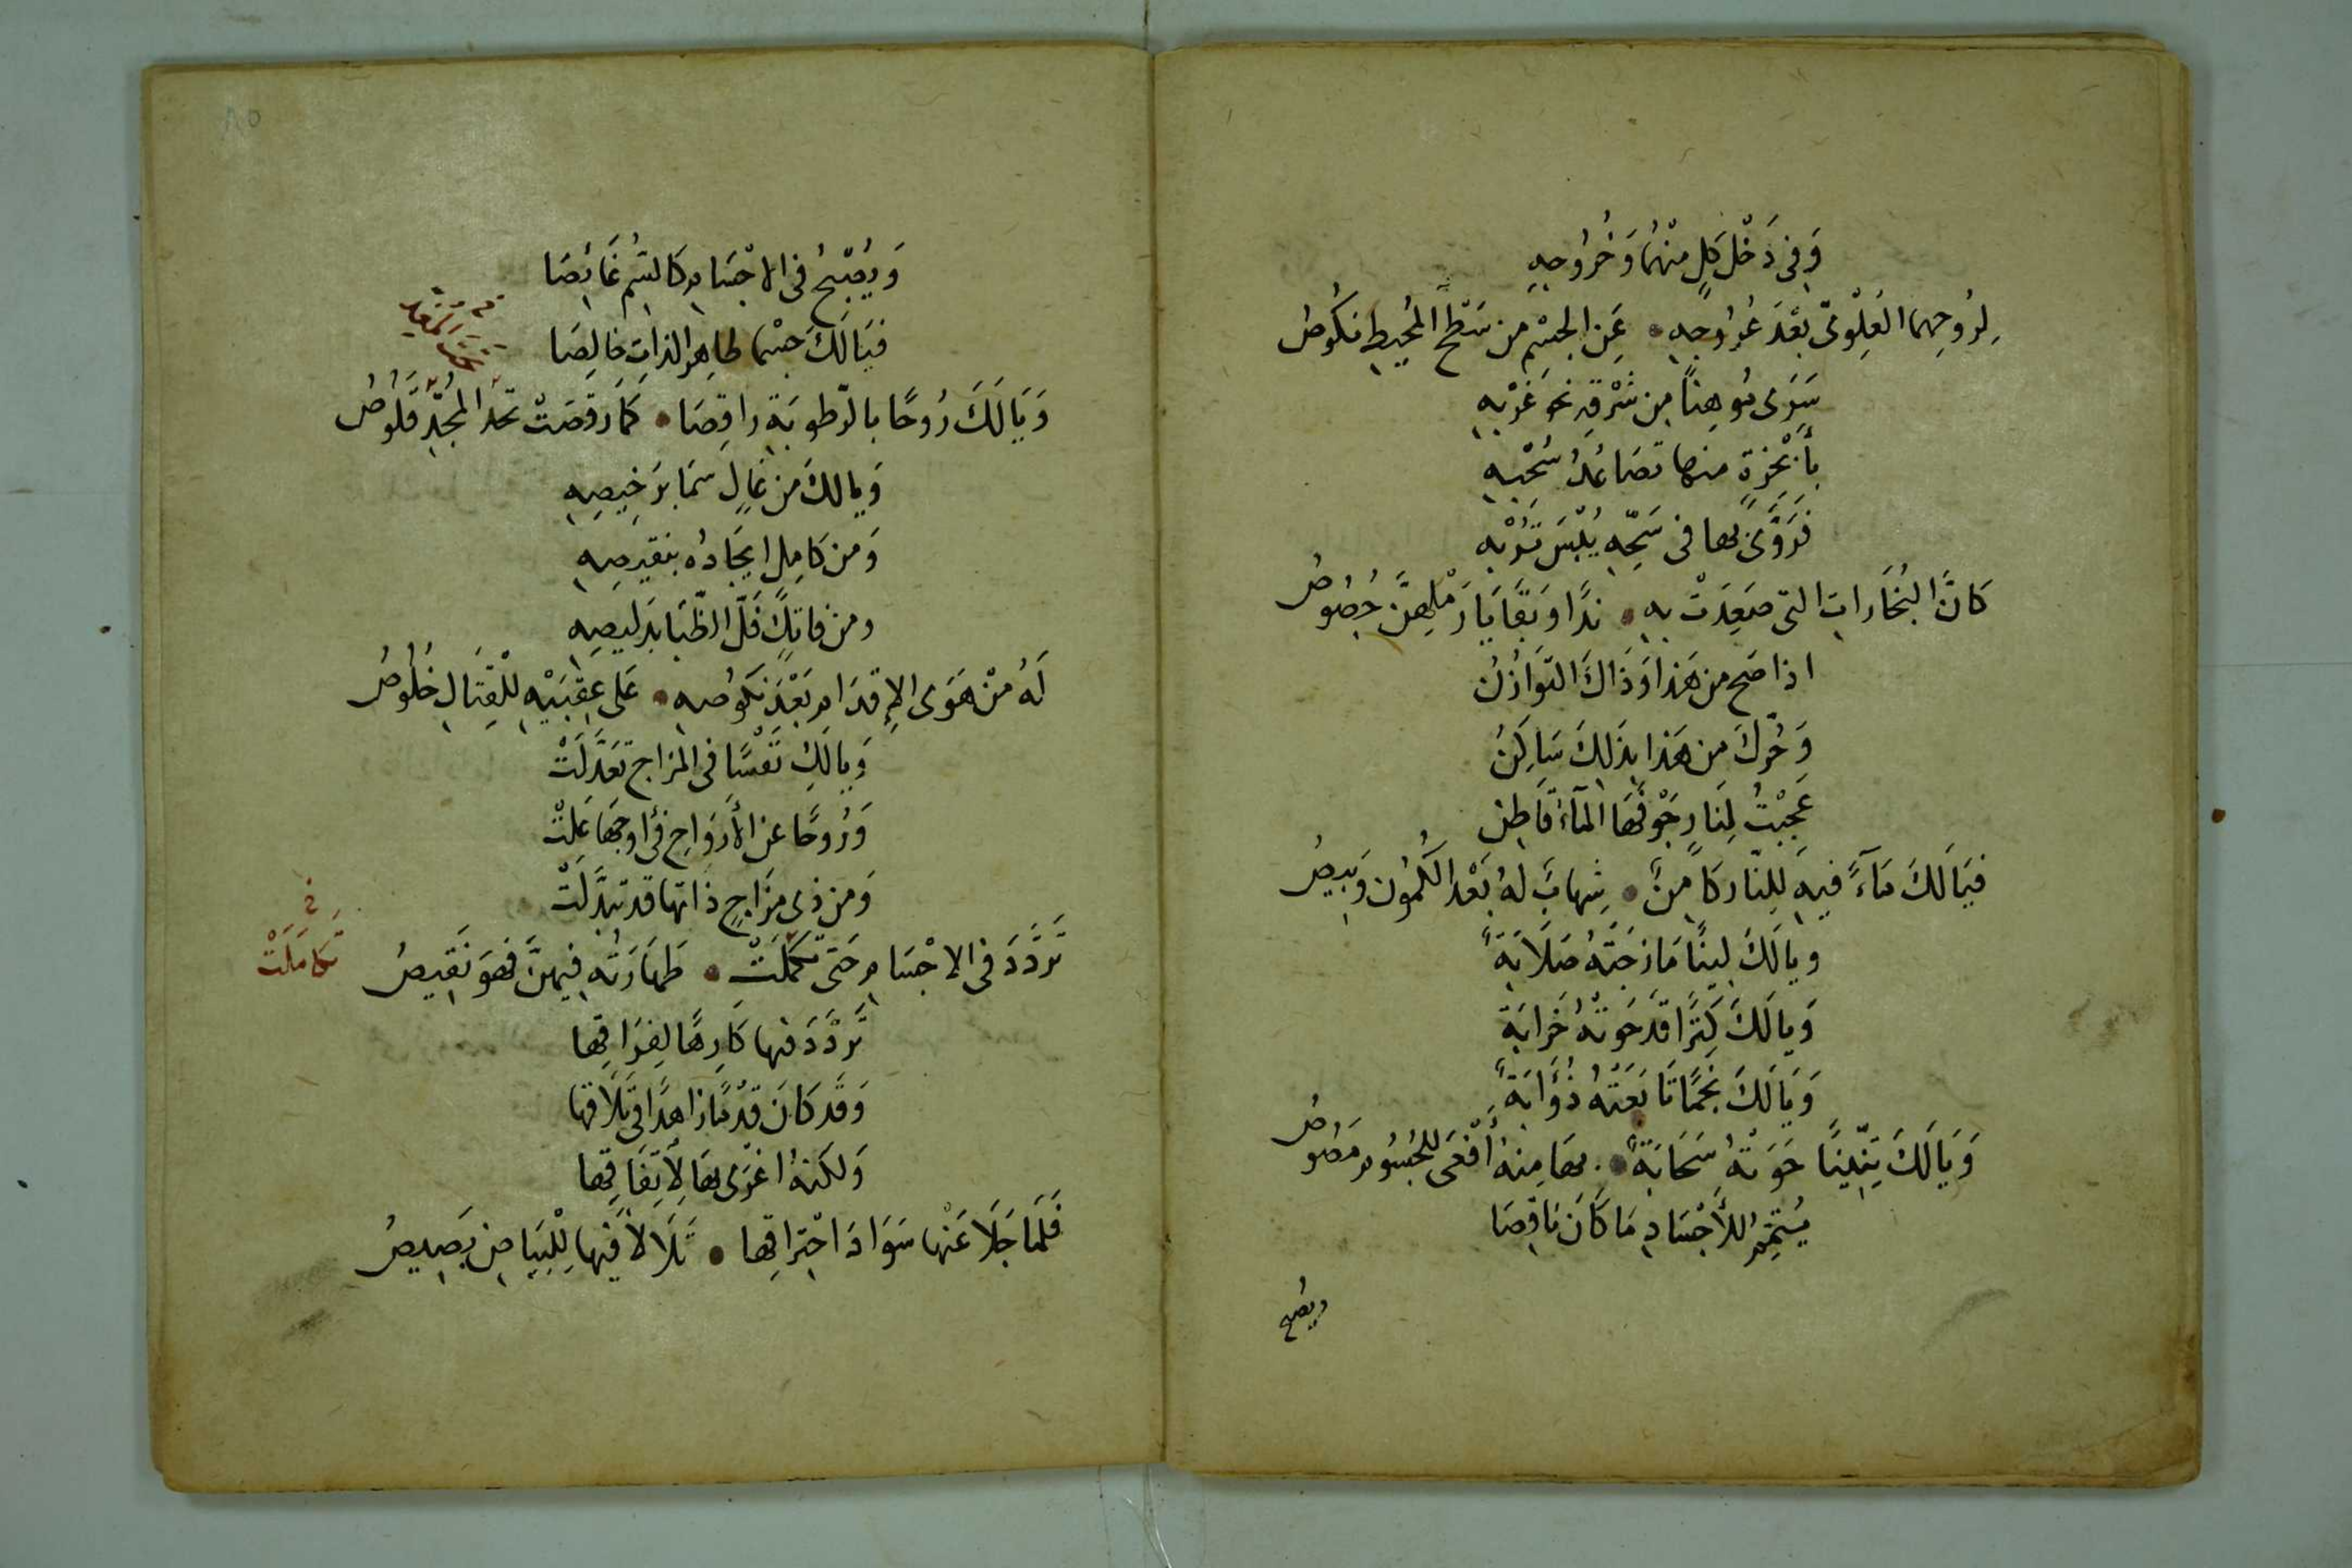 وَفِى دَخْلِ كُلٍ مِنْهُمَا وَخُرُوجِهِ
لِرُوحِهِمَا العُلْوِىّ بَعْدَ عُرُوجِهِ • عَنِ الجِسْمِ مِن سَطْحِ المُحِيطِ نُكُوصُ
سَرَى مُوهِنًا مِن شَرْقِهِ نَحْوَ غَرْبِهِ
بِأَبْخِرَةٍ منها تصَاعُدُ سُحْبِهِ
فَرَوَّى بها فى سَحِّهِ يُبْسَ تُرْبِهِ
كَانَّ البُخَارَاتِ التى صَعِدَتْ بِهِ • نِدًا وَبَقَايَا رَمْلِهِنَّ خُصُوصُ
اذا صَح من هَذا وَذَاكَ التّوَازُنُ
وَحُرِّكَ مِن هَذا بِذَلِكَ سَاكِنُ
عَجِبْتُ لِنَارٍ جَوْفُهَا المَآءُ قَاطِنِ
فَيَالَكَ مَآءً فِيهِ لِلنّارِ كَامِنٌ • شِهابٌ لهُ بَعْدَ الكُمُونِ وَبِيصُ
ويالَكَ لِينًا مَازَجَتْهُ صَلَابَةً
وَيالَكَ كَنْزًا قَدْ حَوَتْهُ خَرابَة
وَيَالَكَ نَجْمًا تَابَعَتْهُ ذُؤَابَةً
وَيَالَكَ تِنِّينًا حَوَتْهُ سَحَابَةً • بها مِنهُ أَفْعَى لِلجُسُومِ مَصُوصُ
يُتَمِّمُ لِلأَجْسَادِ مَا كَانَ نَاقِصَا
ويصُبح
٨٥
وَيُصْبِحُ فى الاجْسَامِ كَالسُّمِ غَائِصَا
فَيَالَكَ جِسْمًا طاهِرَ الذاتِ خالِصَا
وَيَالَكَ رُوحًا بالرّطوبَةِ راقِصَا • كَمَا رَقَصَتْ تحتَ المُجِدِّ قَلُوصُ
وَيالكَ مِن غَالٍ سَمَا بِرَخِيصِهِ
وَمن كَامِلٍ ايجَادُه بنقِيصِهِ
ومن فاتِكٍ فَلَّ الظُّبَا بِدَلِيصِهِ
لَهُ مِنْ هَوَى الاِقْدَامِ بَعْدَ نُكُوصِهِ • عَلى عَقِبَيْهِ لِلْقِتَالِ خُلُوصُ
وَيالَكِ نَفْسًا فى المِزَاجِ تَعَدَّلَتْ
وَرُوحًا عن الأرْوَاحِ فى اوجِهَا عَلَتْ
وَمن ذى مِزَاجٍ ذاتها قد تبَدَّلَتْ
تَرَدَّدَ فى الاجْسَامِ حَتى تكَمَّلَتْ • طَهَارَتُهِ فِيهِنَّ فَهوَ نَقِيصُ
تكَامَلَتْ
تَرَدَّدَ فيها كَارِهًا لِفِرَاقِها
وَقَد كانَ قِدْمًا زاهِدًا فى تَلَاقها
وَلكنهُ اغْرَى بهَا لِاَتِفَاقِها
فَلَمَا جَلَا عَنْها سَوَادَ احْتِرَاقِها • تَلَالأَ فِيها لِلْبَيَاضِ بَصِيصُ